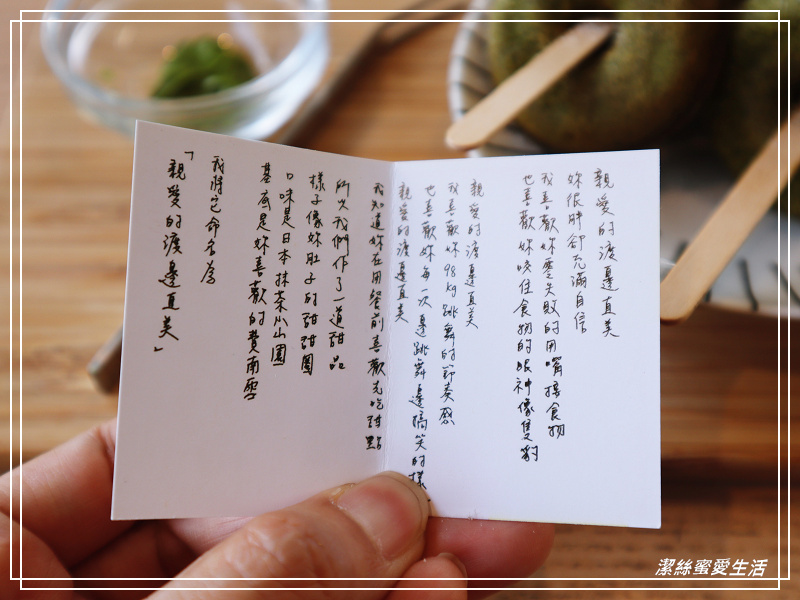 親愛的渡邊直美
妳很胖卻充滿自信
我喜歡妳零失敗的用嘴接食物
也喜歡妳咬住食物的眼神像隻豹
親愛的渡邊直美
我喜歡妳98kg跳舞的節奏感
也喜歡妳每一次邊跳舞邊搞笑的樣
親愛的渡邊直美
我知道妳在用餐前喜歡先吃甜點
所以我們作了一道甜品
樣子像妳肚子的甜甜圈
口味是日本抹茶小山園
基底是妳喜歡的費南雪
我將它命名為
「親愛的渡邊直美」
潔絲蜜愛生活